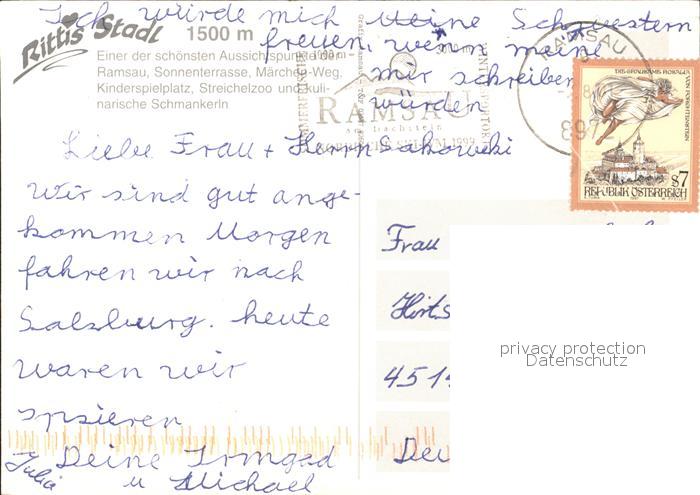 Ich würde mich Meine Schwestern
freuen, wenn meine
mir schreiben
würden
Rittis Stadl
1500 m
Einer der schönsten Aussichtspunkte der
Ramsau, Sonnenterrasse, Märchen-Weg.
Kinderspielplatz, Streichelzoo und kuli-
narische Schmankerln
RAMSAU
am Dachstein
1999
RAMSAU
897
DIE GRAUSAME ROSALIA
VON FORCHTENSTEIN
S 7
REPUBLIK ÖSTERREICH
Liebe Frau + Herrn Sakowski
Wir sind gut ange-
kommen Morgen
fahren wir nach
Salzburg. heute
waren wir
spsieren
Deine Irmgad
u Michael
Julia
Frau
Hirts
451
privacy protection
Datenschutz